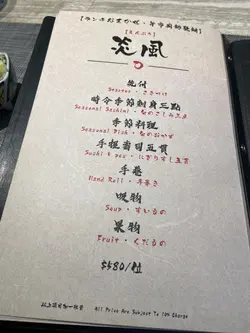 【ランチおまかせ・午市廚師發辦】
【えんぷう】
炎風
先付
Starter・さきづけ
時令季節刺身三點
Seasonal Sashimi・なのさしみ三点
季節料理
Seasonal Dish・なのおかず
手握壽司五貫
Sushi 5 pcs・にぎりすし五貫
手卷
Hand Roll・手巻き
吸物
Soup・すいもの
果物
Fruit・くだもの
$580/位
以上價目加一服務 All Price Are Subject To 10% Charge